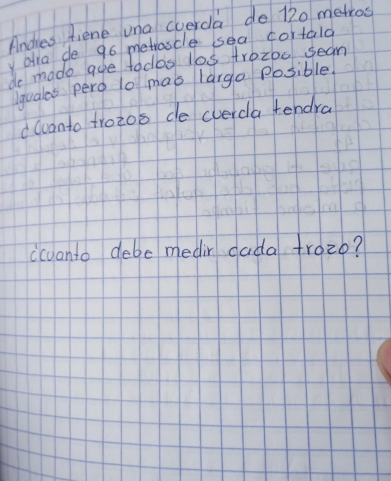 Andres tiene una cuerda de 120 metros
y otra de 96 metros de sea cortala
de modo que todos los trozos sean
Iguales pero lo mas largo posible.
¿Cuanto trozos de cuerda tendra
¿cuanto debe medir cada trozo?